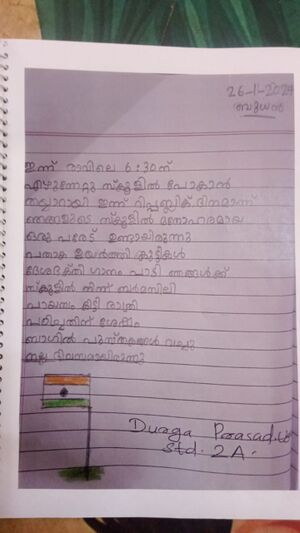 26-1-2024
ബുധൻ
ഇന്ന് രാവിലെ 6:30ന്
എഴുന്നേറ്റു സ്കൂളിൽ പോകാൻ
തയ്യാറായി ഇന്ന് റിപ്പബ്ലിക് ദിനമാണ്
ഞങ്ങളുടെ സ്കൂളിൽ മനോഹരമായ
ഒരു പരേഡ് ഉണ്ടായിരുന്നു
പതാക ഉയർത്തി കുട്ടികൾ
ദേശഭക്തി ഗാനം പാടി ഞങ്ങൾക്ക്
സ്കൂളിൽ നിന്ന്
പായസം കിട്ടി രാത്രി
പഠിച്ചതിന് ശേഷം
ബാഗിൽ പുസ്തകങ്ങൾ വച്ചു
നല്ല ദിവസമായിരുന്നു
Durga Prasad
Std. 2A.